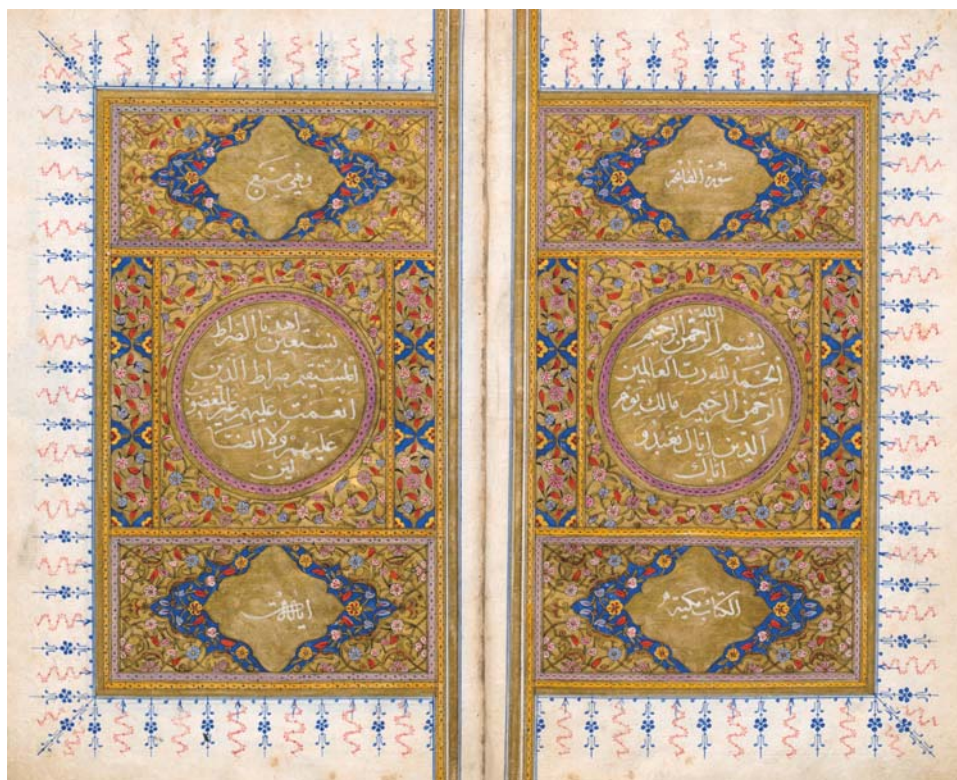 سورة الفاتحة
بسم الله الرحمن الرحيم
الحمد لله رب العالمين
الرحمن الرحيم مالك يوم
الدين اياك نعبد و
اياك
الكتاب مكية
وهي سبع
نستعين اهدنا الصراط
المستقيم صراط الذين
انعمت عليهم غير المغضو
عليهم ولا الضآ
لين
ايات